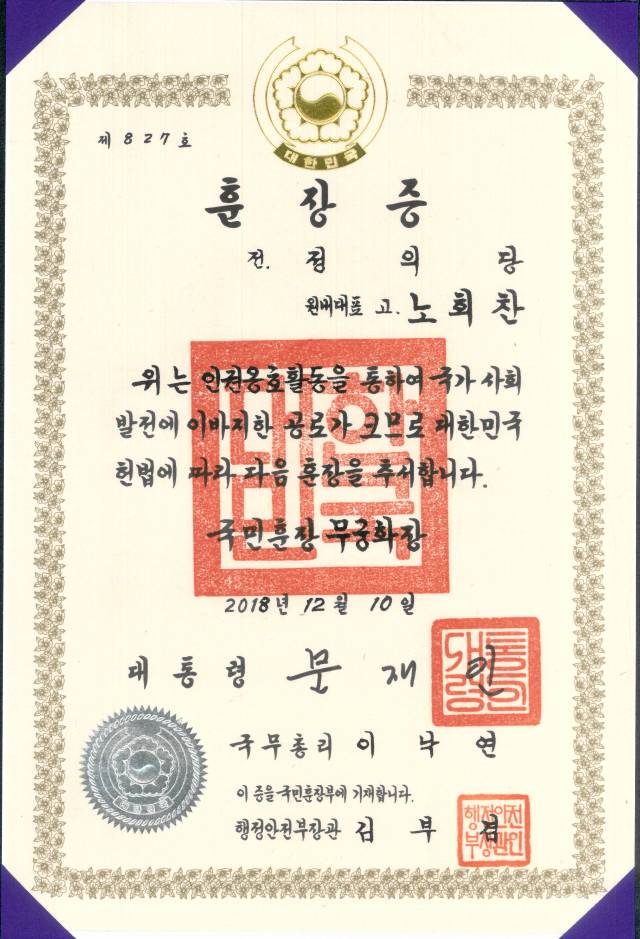 대한민국
제 827 호
훈 장 증
전. 정 의 당
원내대표 고. 노 회 찬
위는 인권옹호활동을 통하여 국가 사회
발전에 이바지한 공로가 크므로 대한민국
헌법에 따라 다음 훈장을 추서합니다.
국민훈장 무궁화장
2018년 12월 10일
대통령 문 재 인
국무총리 이 낙 연
이 증을 국민훈장부에 기재합니다.
행정안전부장관 김 부 겸
행정안전
부장관인